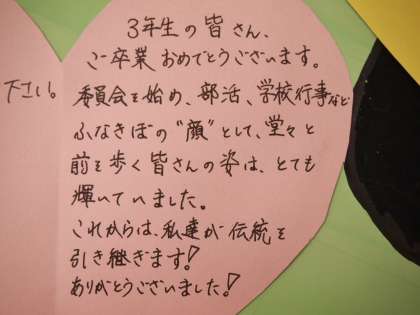 3年生の皆さん、
ご卒業おめでとうございます。
委員会を始め、部活、学校行事など
ふなきぼの"顔"として、堂々と
前を歩く皆さんの姿は、とても
輝いていました。
これからは、私達が伝統を
引き継ぎます!
ありがとうございました!
下さい。